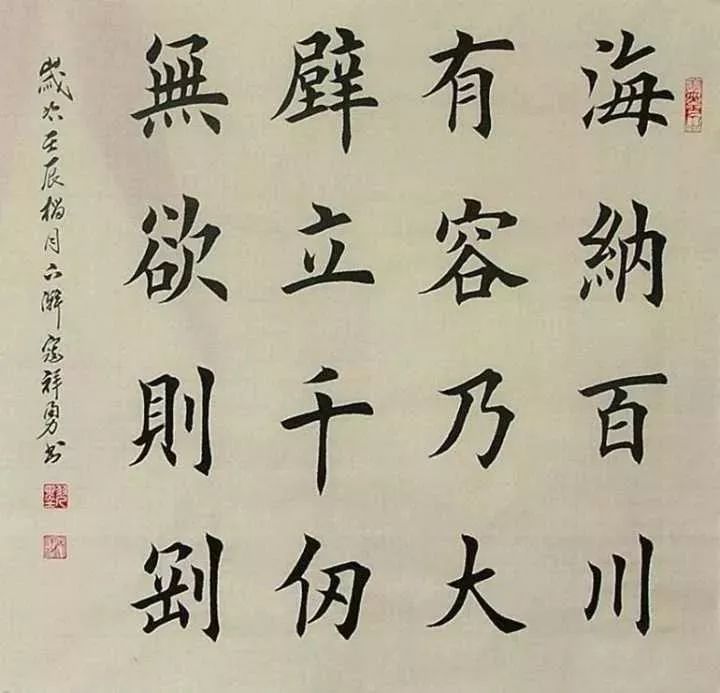 海納百川
有容乃大
壁立千仞
無欲則剛
歲次壬辰月祥勇書